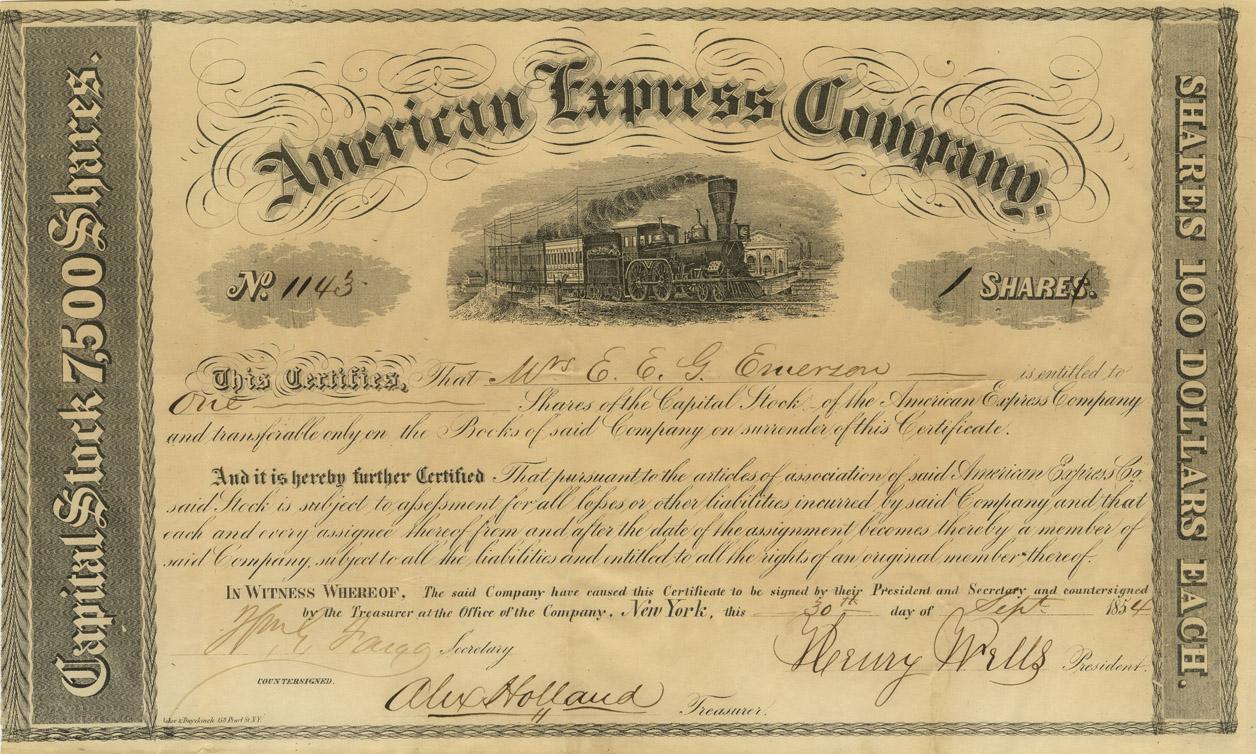 American Express Company.
Capital Stock 7,500 Shares.
SHARES 100 DOLLARS EACH.
No. 1143
1 SHARES.
This Certifies, That Mrs E. E. G. Emerson is entitled to
One Shares of the Capital Stock of the American Express Company
and transferable only on the Books of said Company on surrender of this Certificate.
And it is hereby further Certified That pursuant to the articles of association of said American Express Co.
said Stock is subject to assessment for all losses or other liabilities incurred by said Company and that
each and every assignee thereof from and after the date of the assignment becomes thereby a member of
said Company, subject to all the liabilities and entitled to all the rights of an original member thereof.
IN WITNESS WHEREOF, The said Company have caused this Certificate to be signed by their President and Secretary and countersigned
by the Treasurer at the Office of the Company, New York, this 30th day of Sept. 1854
Secretary
Henry Wells President.
COUNTERSIGNED.
Alex Holland Treasurer.
& Duyckinck 158 Pearl St. N.Y.